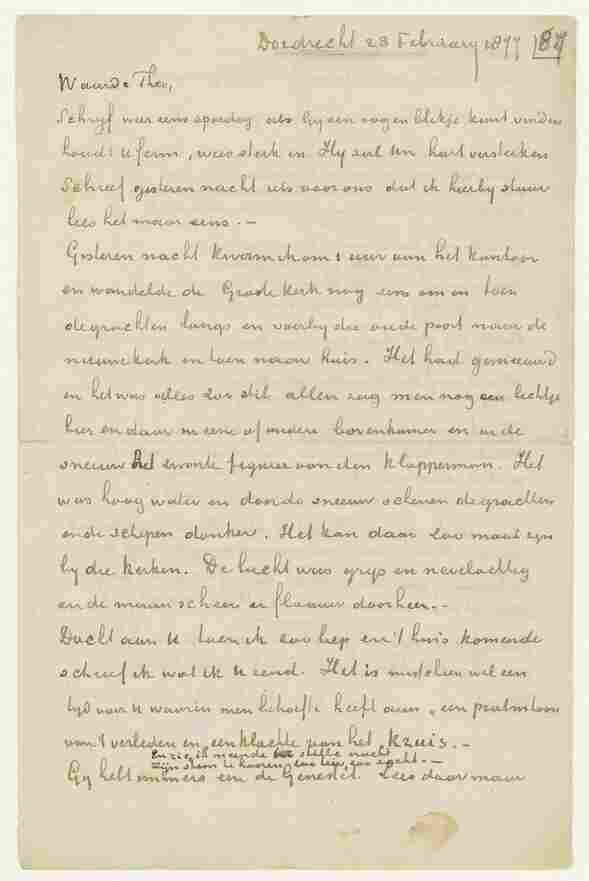 Dordrecht 28 Februarij 1877 87
Waarde Theo,
Schrijf weer eens spoedig als gij een oogenblikje kunt vinden
houdt U ferm, wees sterk en Hij zal Uw hart versterken
Schreef gisteren nacht iets voor ons dat ik hierbij stuur
lees het maar eens. —
Gisteren nacht kwam ik om 1 uur van het kantoor
en wandelde de Groote kerk nog eens om en toen
de grachten langs en voorbij die oude poort naar de
nieuwe kerk en toen naar huis. Het had gesneeuwd
en het was alles zoo stil alleen zag men nog een lichtje
hier en daar in eene of andere bovenkamer en in de
sneeuw de zwarte figuur van den klapperman. Het
was hoog water en door de sneeuw schenen de grachten
en de schepen donker. Het kan daar zoo mooi zijn
bij die kerken. De lucht was grijs en nevelachtig
en de maan scheen er flaauw doorheen. -
Dacht aan U toen ik zoo liep en t' huis komende
schreef ik wat ik U zend. Het is misschien wel een
tijd voor U waarin men behoefte heeft aan een
van 't verleden en een klachte van het kruis. -
En zie, ik meende stille nacht
Zijn stem te hooren, zoo teer, zoo zacht. —
Gij hebt immers een de Genestet. Lees daar maar